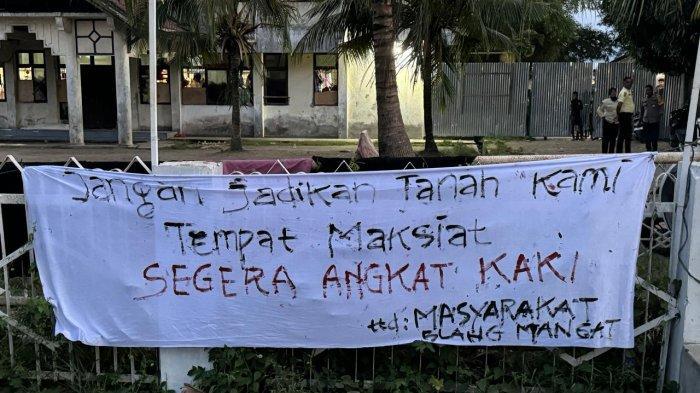 Jangan Jadikan Tanah Kami
Tempat Maksiat
SEGERA ANGKAT KAKI
ttd: MASYARAKAT
BLANG MANGAT